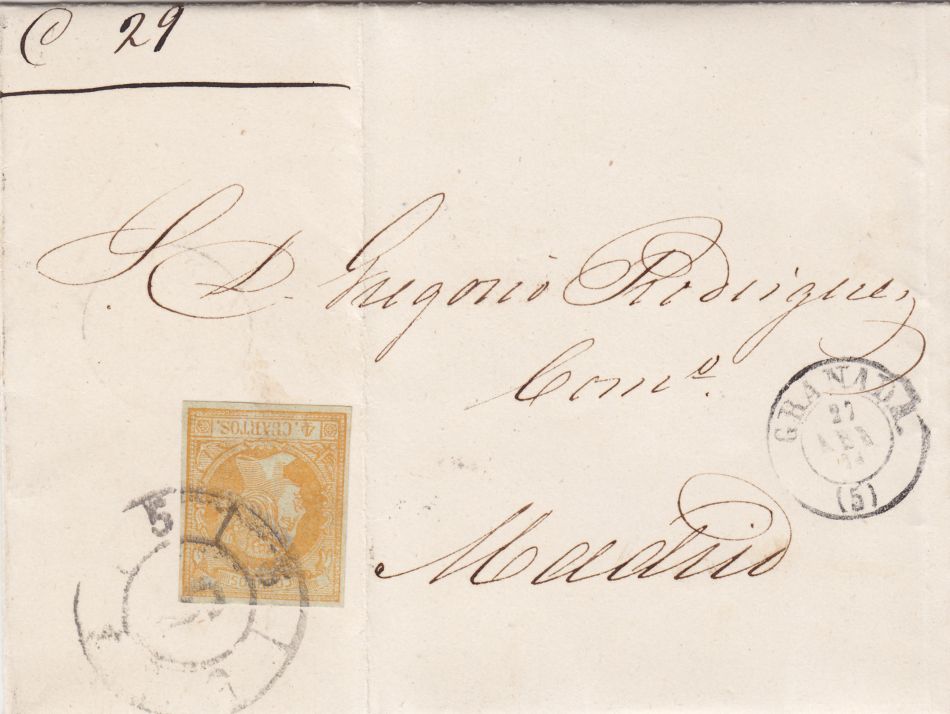 C 29
S. D. Gregorio Rodriguez
Comº.
Madrid
GRANADA
27
(5)
4 CUARTOS.
5